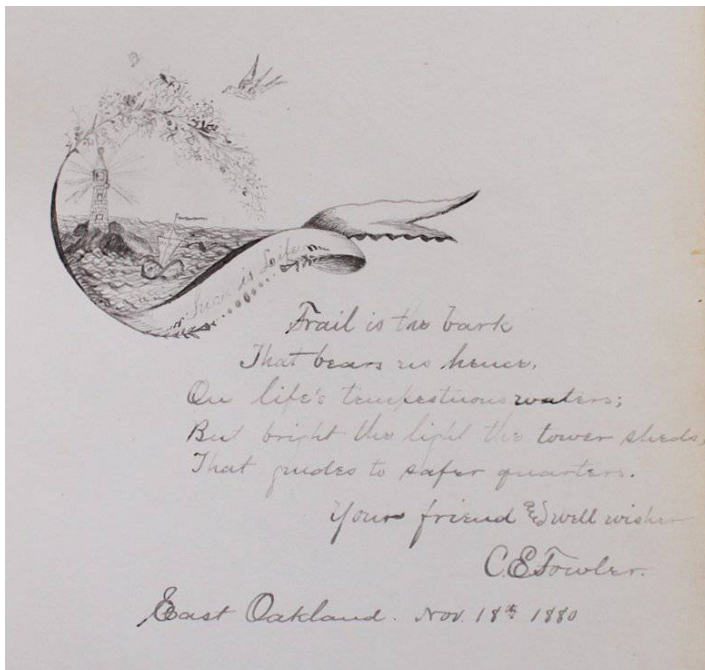 Such is Life
Frail is the bark
That bears us hence,
On life's tempestuous waters;
But bright the light the tower sheds,
That guides to safer quarters.
Your friend & well wisher
C.E. Fowler.
East Oakland. Nov. 18th 1880